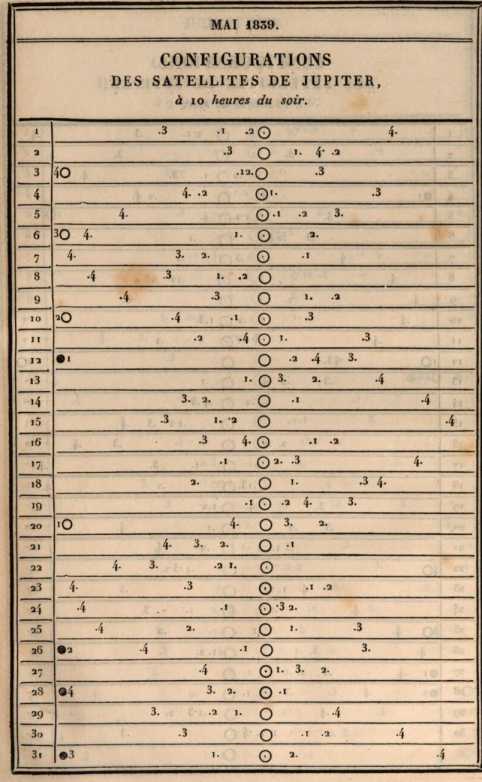 MAI 1839.
CONFIGURATIONS
DES SATELLITES DE JUPITER,
à 10 heures du soir.
1 .3 .1 .2 ○ 4.
2 .3 ○ 1. 4. .2
3 4○ .12. ○ .3
4 4. .2 ○ 1. .3
5 4. ○ .1 .2 3.
6 3○ 4. 1. ○ 2.
7 4. 3. 2. ○ .1
8 .4 .3 1. .2 ○
9 .4 .3 ○ 1. .2
10 2○ .4 .1 ○ .3
11 .2 .4 ○ 1. .3
12 ●1 ○ .2 .4 3.
13 1. ○ 3. 2. .4
14 3. 2. ○ .1 .4
15 .3 1. .2 ○ .4
16 .3 4. ○ .1 .2
17 .1 ○ 2. .3 4.
18 2. ○ 1. .3 4.
19 .1 ○ .2 4. 3.
20 1○ 4. ○ 3. 2.
21 4. 3. 2. ○ .1
22 4. 3. .2 1. ○
23 4. .3 ○ .1 .2
24 .4 .1 ○ .3 2.
25 .4 2. ○ 1. .3
26 ●2 .4 .1 ○ 3.
27 .4 ○ 1. 3. 2.
28 ●4 3. 2. ○ .1
29 3. .2 1. ○ .4
30 .3 ○ .1 2. .4
31 ●3 1. ○ 2. .4